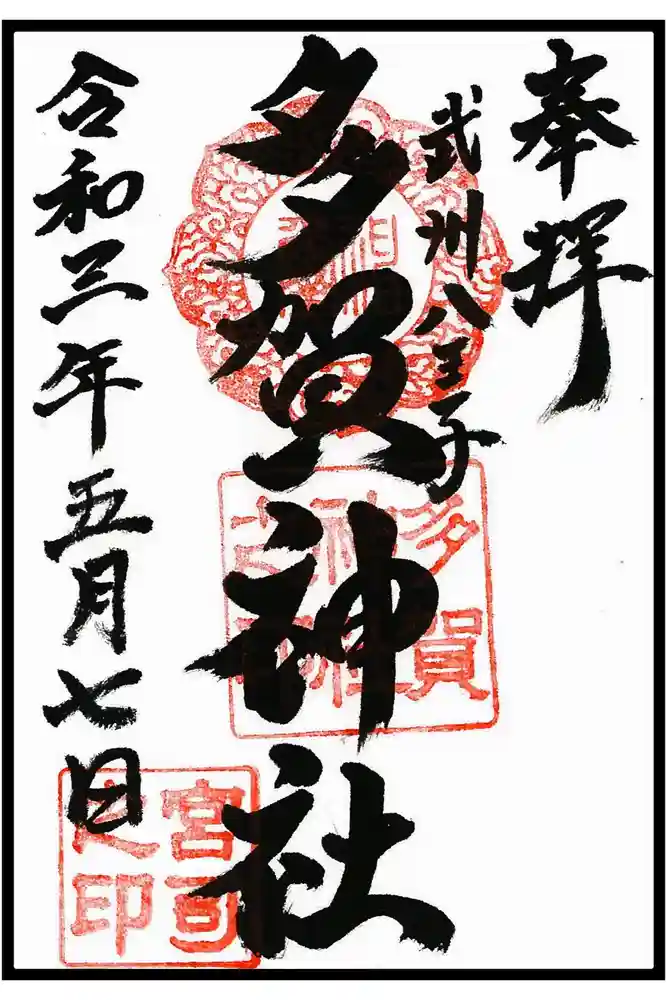 奉拝
武州八王子
多賀神社
令和三年五月七日
多賀
神社
之印
宮司
之印